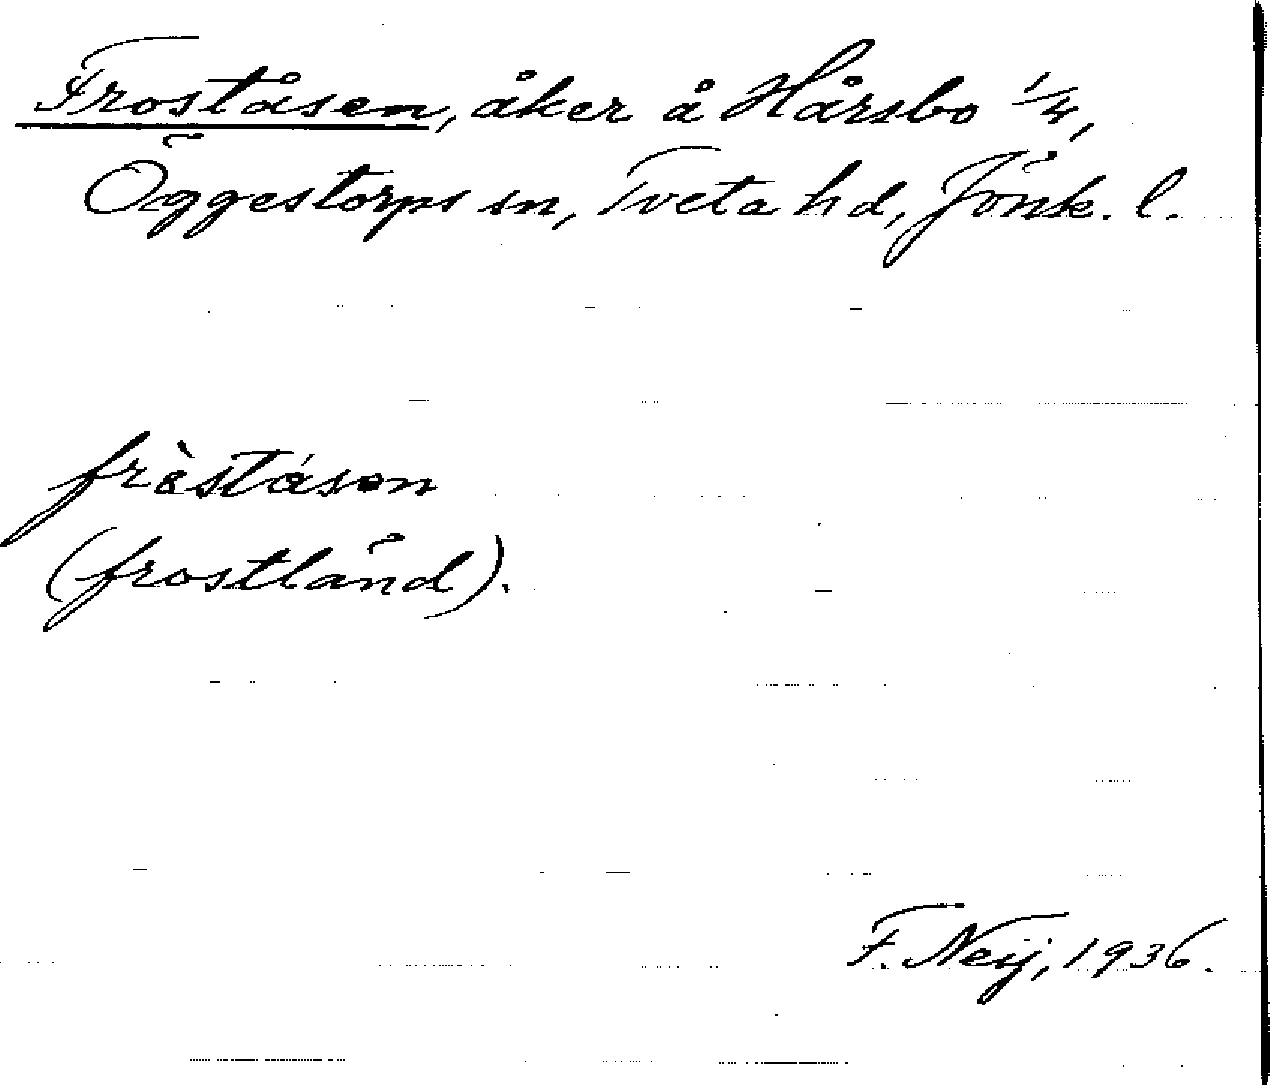 Froståsen, åker å Hårsbo 1/4,
Öggestorps sn, Tveta hd, Jönk. l.
fròstásən
(frostländ).
F. Neij, 1936.